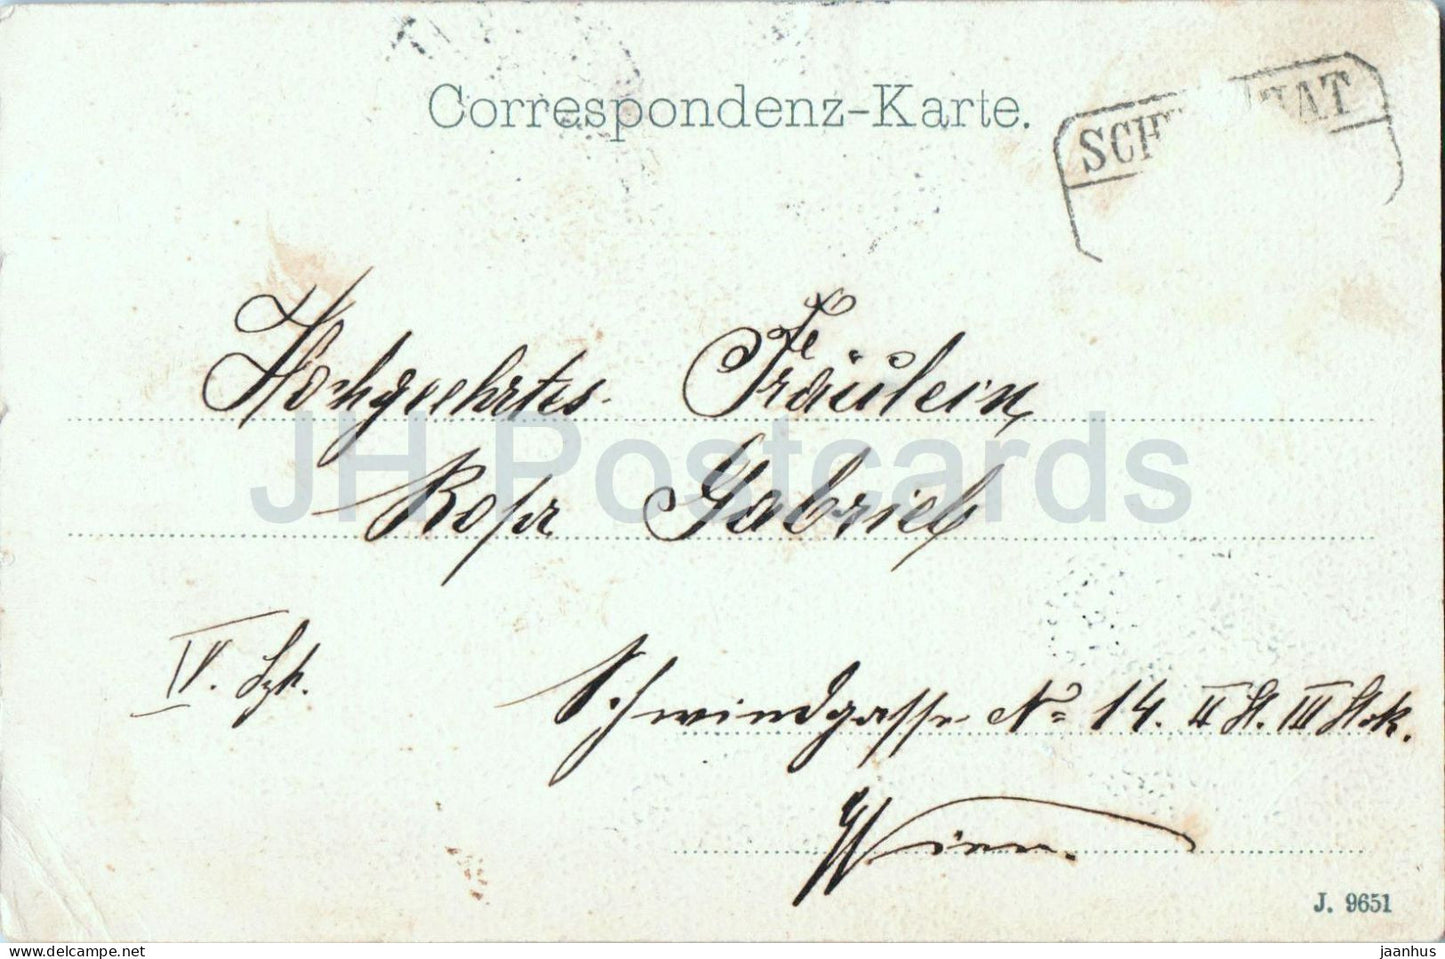 Correspondenz-Karte.
Hochgeehrtes Fräulein
Rosa Gabriel
IV. Bzk.
Schwindgasse No 14. II St. III Stok.
Wien.
J. 9651
JH Postcards
delcampe.net
jaanhus